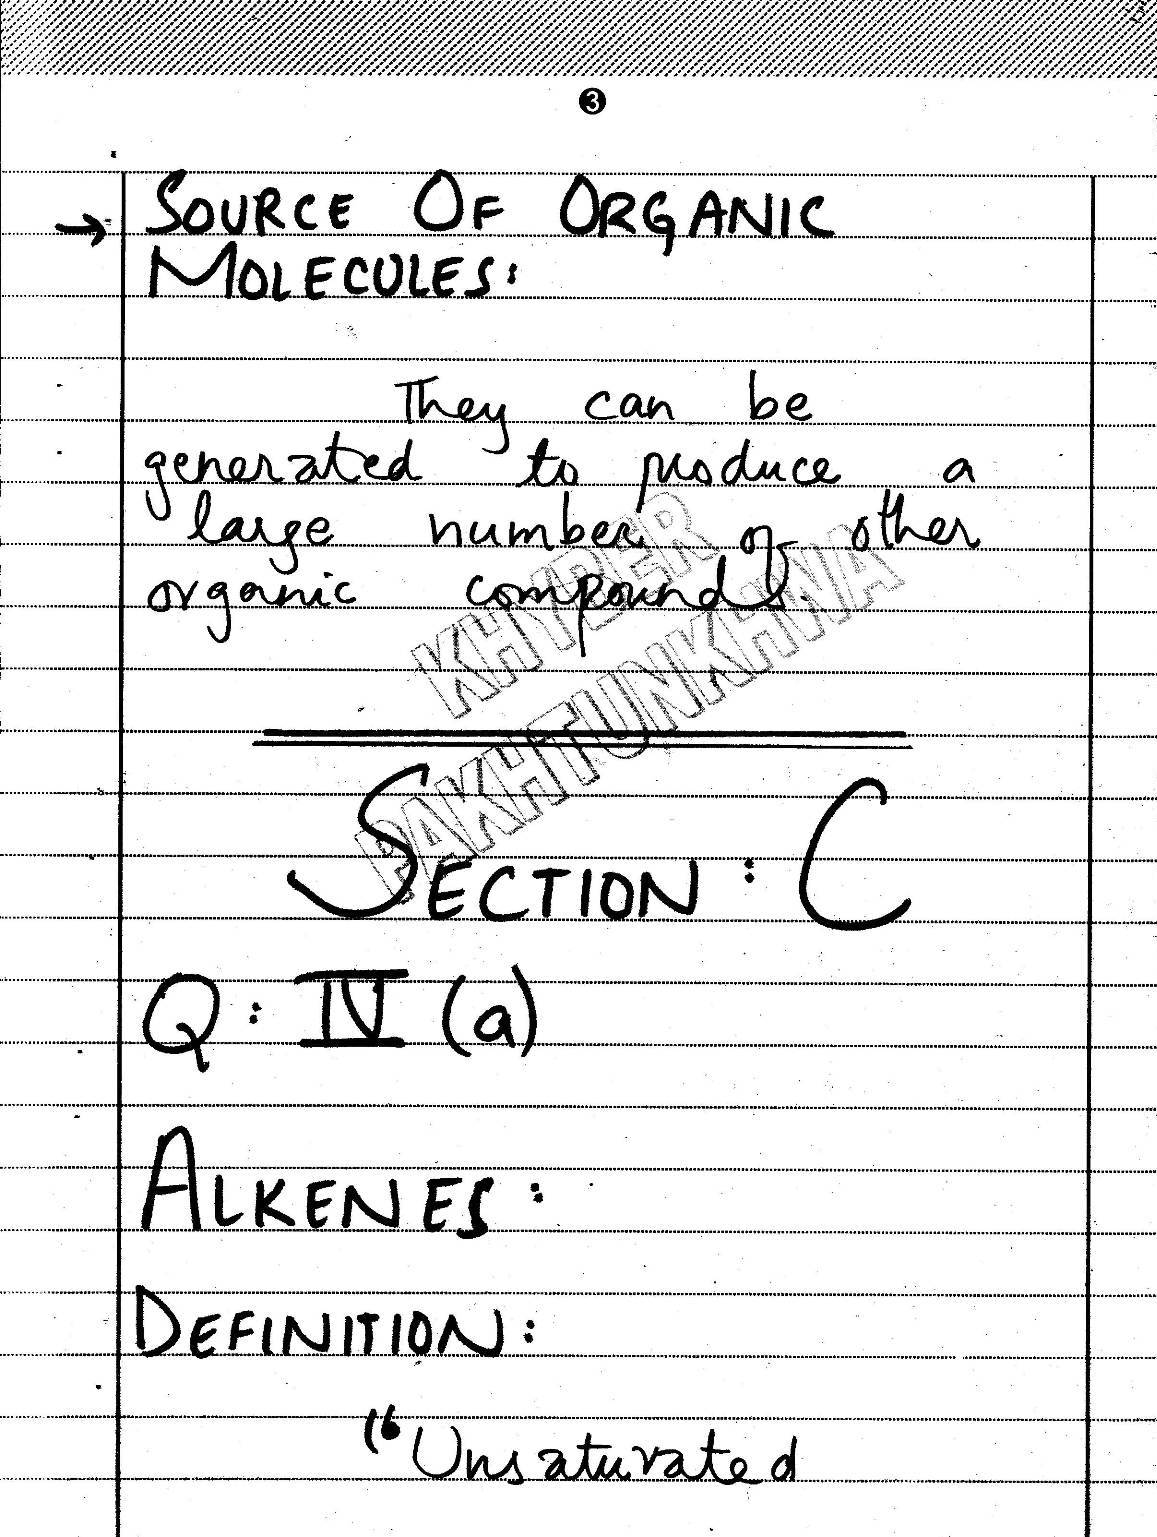 3
→ SOURCE OF ORGANIC
MOLECULES:
They can be
generated to produce a
large number of other
organic compounds.
KHYBER
PAKHTUNKHWA
SECTION : C
Q : IV (a)
ALKENES :
DEFINITION :
“Unsaturated